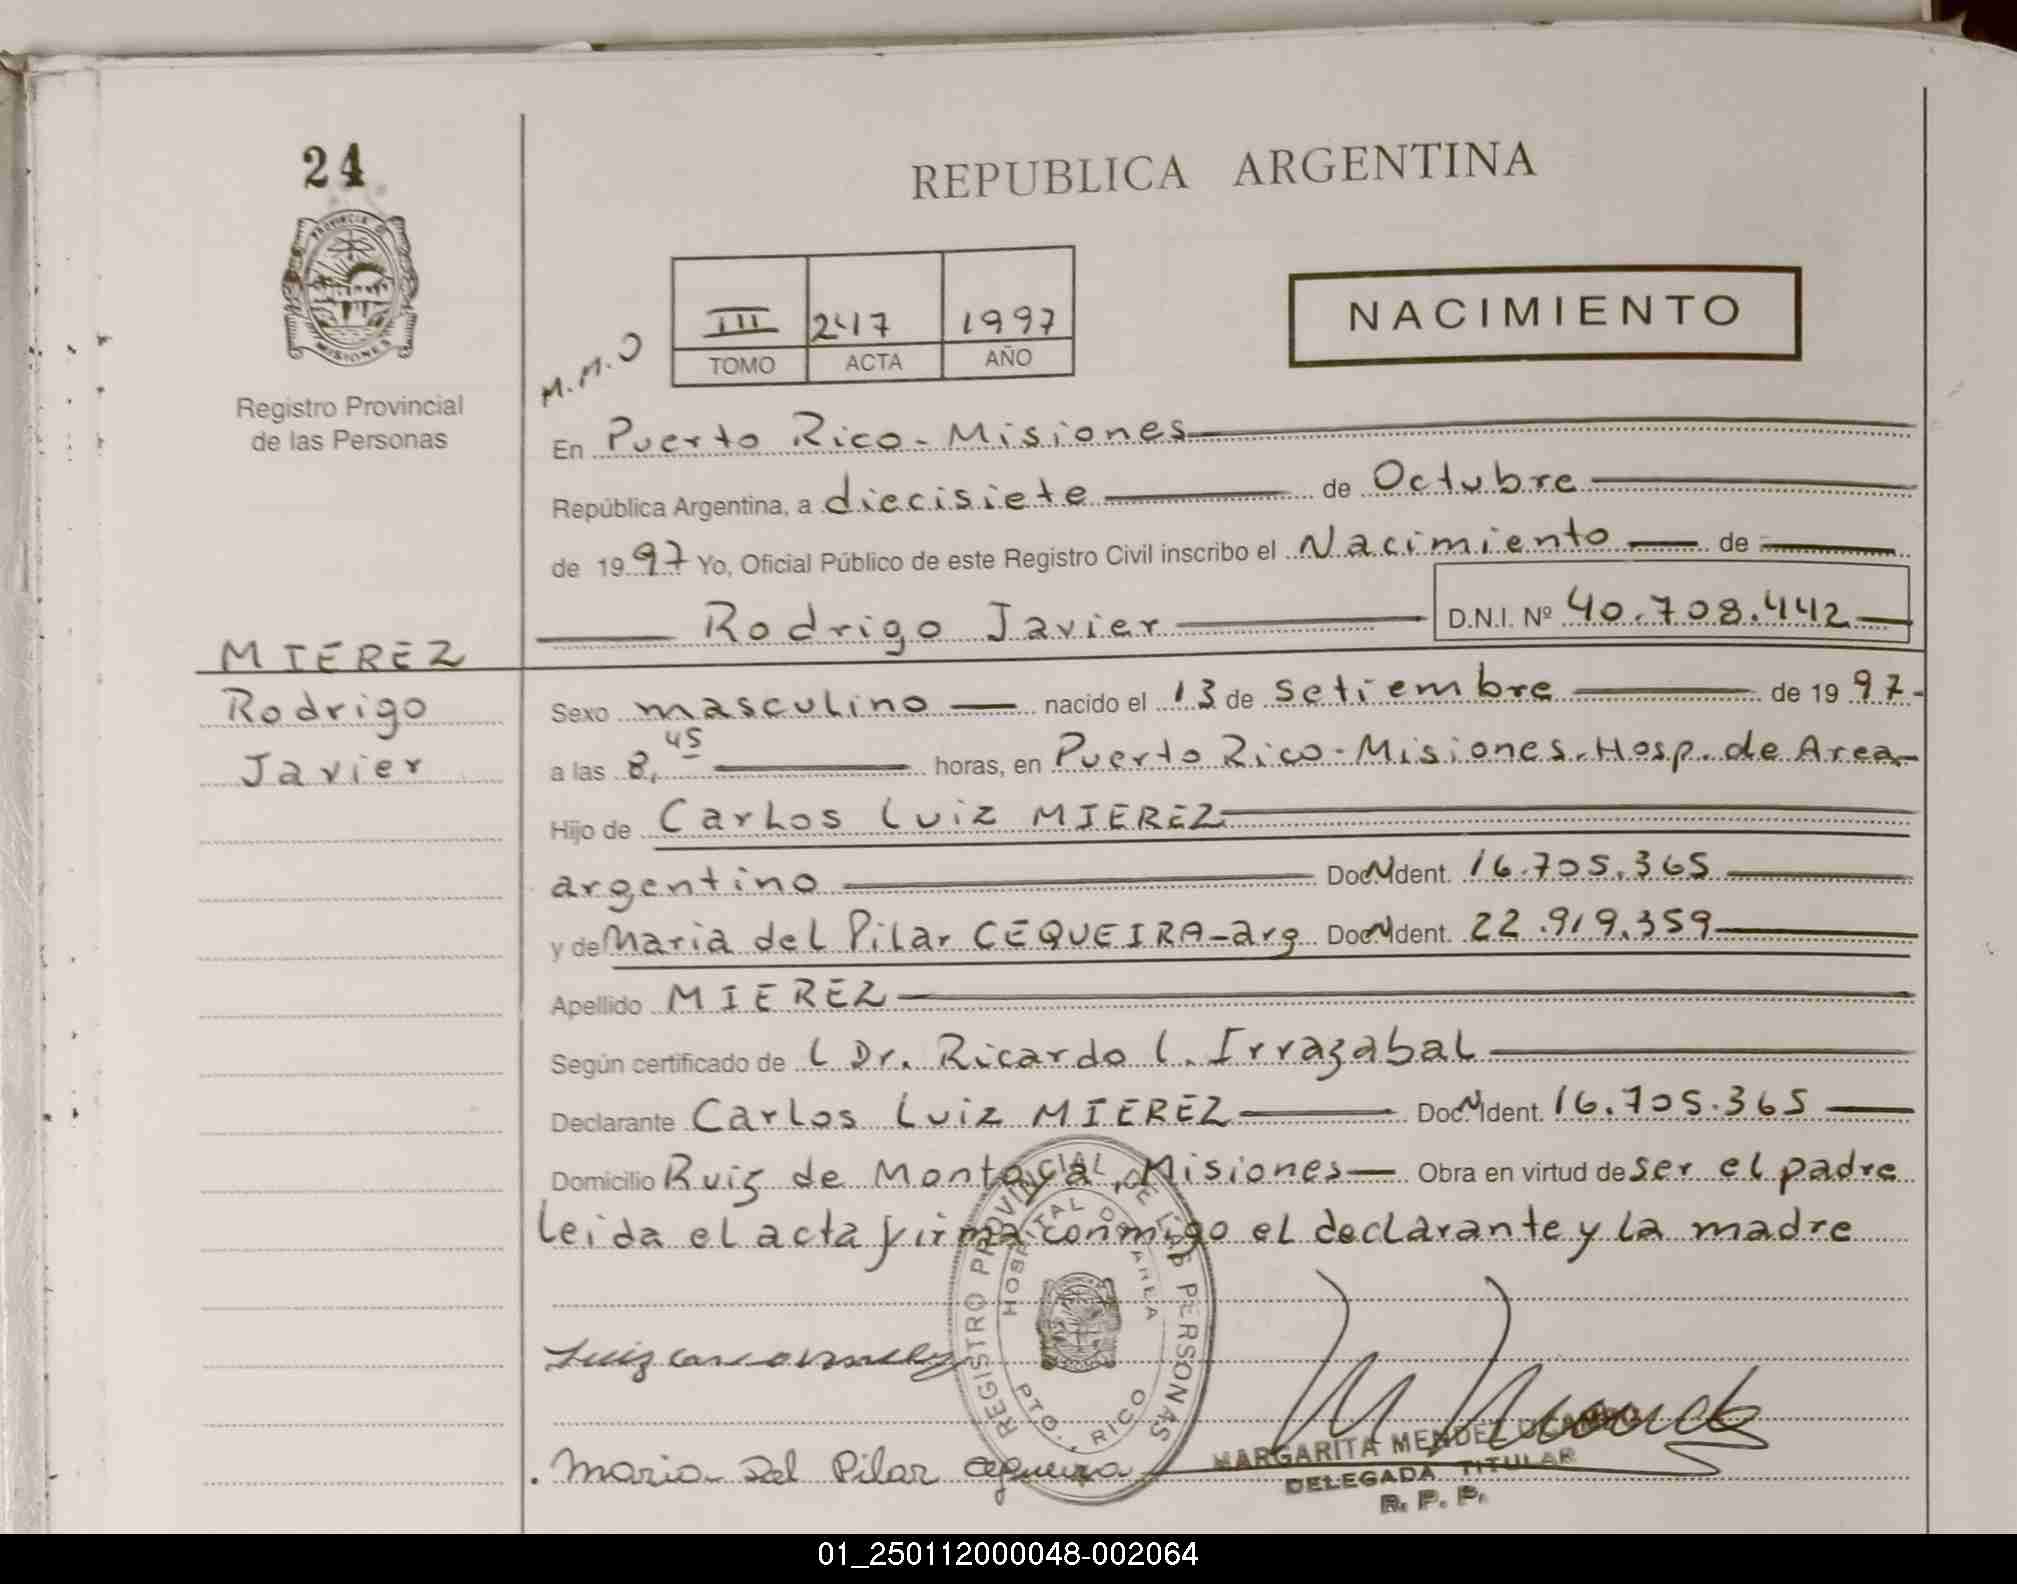 24
REPUBLICA ARGENTINA
PROVINCIA DE
MISIONES
Registro Provincial
de las Personas
III 247 1997
TOMO ACTA AÑO
NACIMIENTO
M.M.O
En Puerto Rico - Misiones
República Argentina, a diecisiete de Octubre
de 1997 Yo, Oficial Público de este Registro Civil inscribo el Nacimiento de
Rodrigo Javier D.N.I. Nº 40.708.442
MIEREZ
Rodrigo
Javier
Sexo masculino nacido el 13 de setiembre de 1997
a las 8,45 horas, en Puerto Rico - Misiones. Hosp. de Area
Hijo de Carlos Luiz MIEREZ
argentino Doc N Ident. 16.705.365
y de Maria del Pilar CEQUEIRA - arg Doc N Ident. 22.919.359
Apellido MIEREZ
Según certificado de l Dr. Ricardo l. Irrazabal
Declarante Carlos Luiz MIEREZ Doc N Ident. 16.705.365
Domicilio Ruiz de Montoya, Misiones Obra en virtud de ser el padre
leida el acta firma conmigo el declarante y la madre
REGISTRO PROVINCIAL DE LAS PERSONAS
HOSPITAL DE AREA
PTO. RICO
Maria del Pilar Cequeira
MARGARITA MENDEZ
DELEGADA TITULAR
R. P. P.
01_250112000048-002064